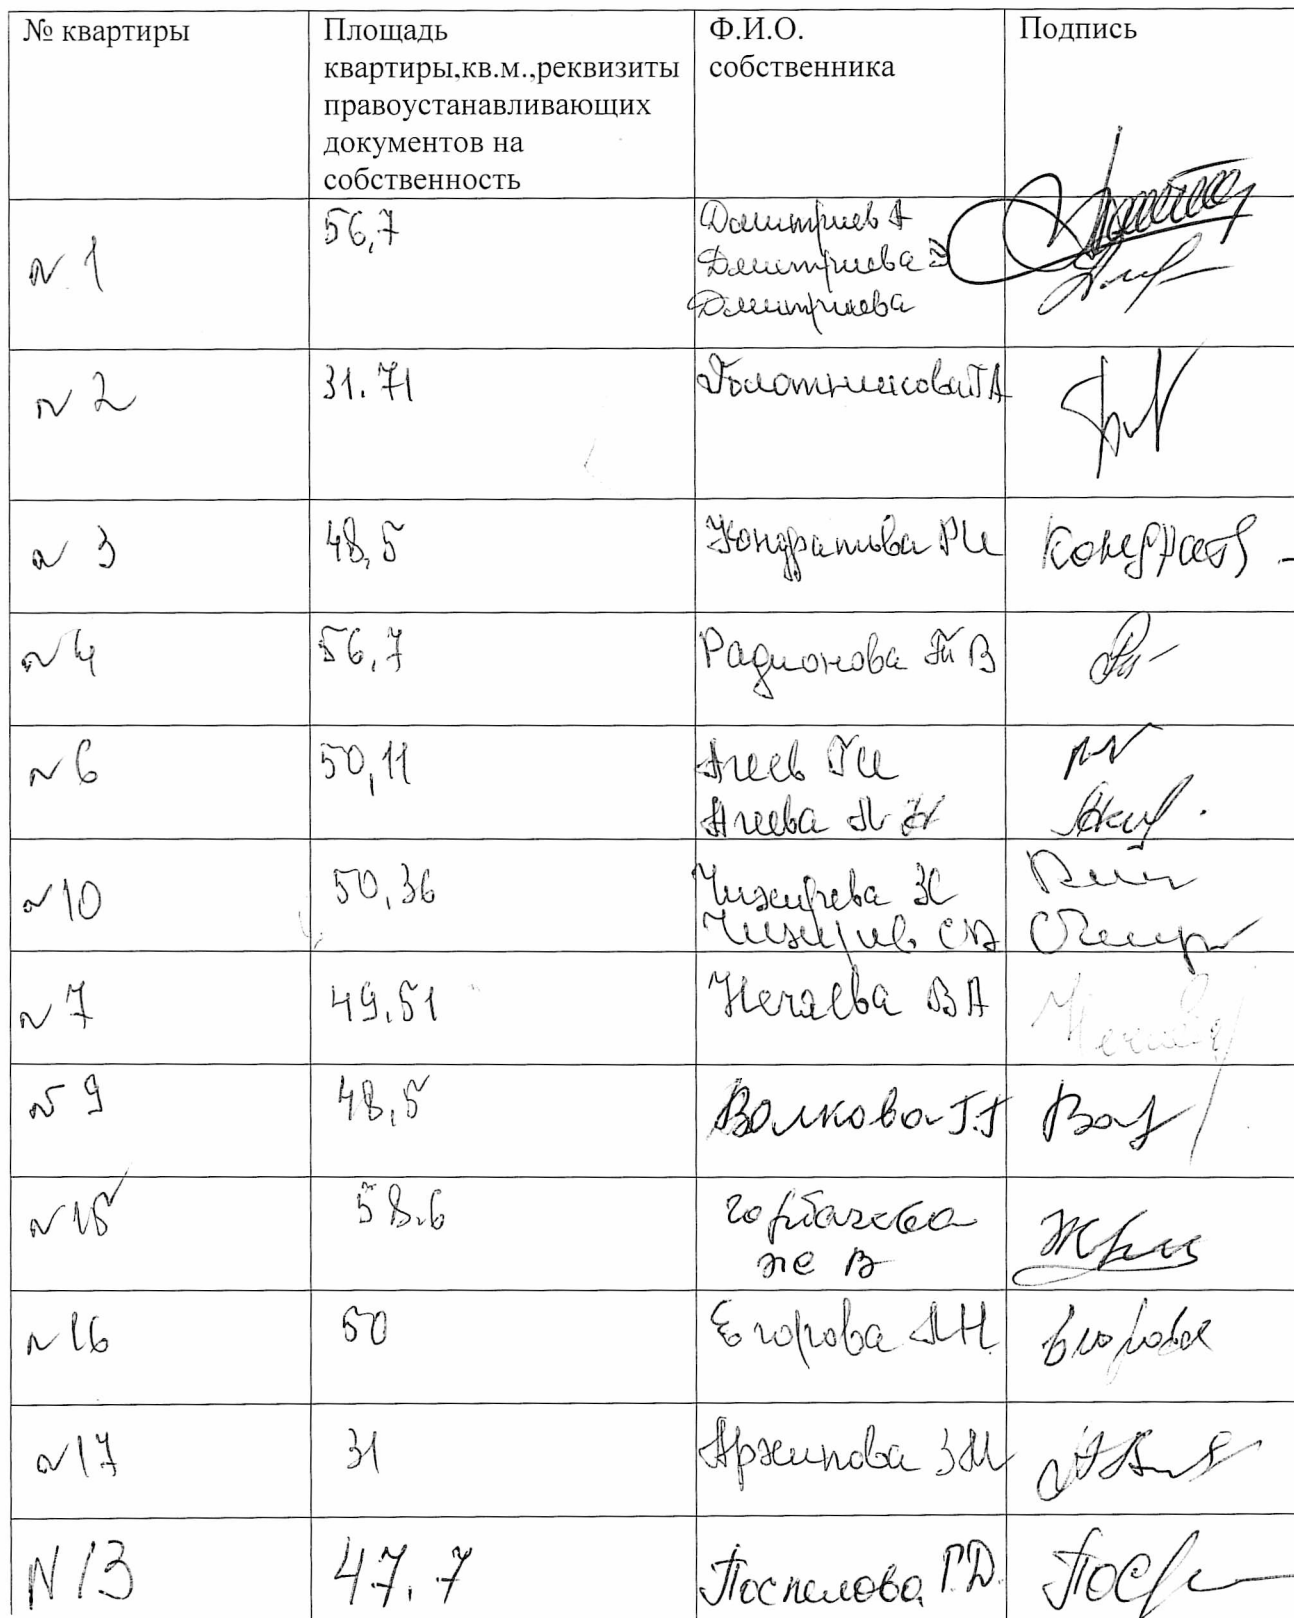 № квартиры
Площадь
квартиры,кв.м.,реквизиты
правоустанавливающих
документов на
собственность
Ф.И.О.
собственника
Подпись
№ 1
56,7
Дмитриев А
Дмитриева
Дмитриева
№ 2
31.71
ТА
№ 3
48,5
Кондратьева РИ
Кондрат
№ 4
56,7
Радионова Т В
№ 6
50,11
Агеев Г И
Агеева Л Н
№ 10
50,36
Чижирева ЗС
Чижирев
№ 7
49,51
Нечаева ВА
Нечаева
№ 9
48,5
Волкова Г.Г
№ 15
58.6
Горбачева
же В
№ 16
50
Егорова Л Н.
Егорова
№ 17
31
Архипова З М
N 13
47.7
Поспелова Г.Д.